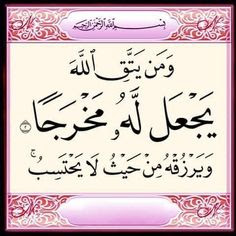 بِسْمِ اللَّهِ الرَّحْمَٰنِ الرَّحِيمِ
وَمَن يَتَّقِ ٱللَّهَ
يَجْعَل لَّهُۥ مَخْرَجًا ٢
وَيَرْزُقْهُ مِنْ حَيْثُ لَا يَحْتَسِبُ ۚ